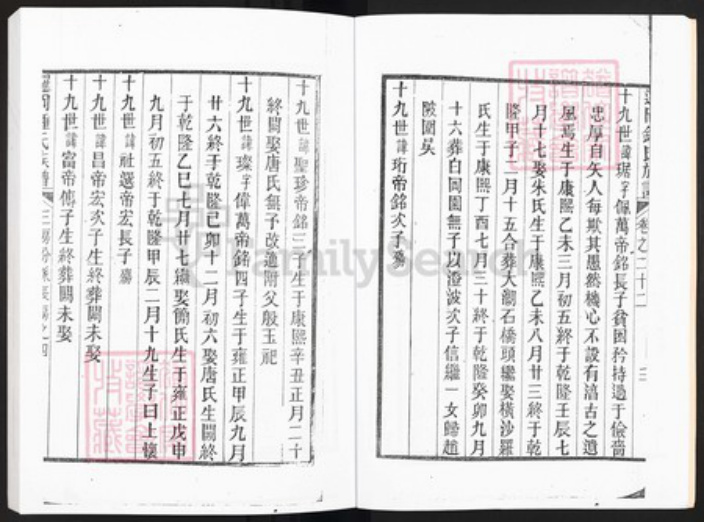 十九世諱琚字佩萬帝銘長子貧困矜持過于儉嗇
忠厚自矢人每欺其愚然機心不設有湻古之遺
風焉生于康熙乙未三月初五終于乾隆壬辰七
月十七娶朱氏生于康熙乙未八月廿三終于乾
隆甲子二月十五合葬大湖石橋頭繼娶橫沙羅
氏生于康熙丁酉七月三十終于乾隆癸卯九月
十六葬白岡園無子以澄波次子信繼一女歸趙
陂國吳
十九世諱珩帝銘次子殤
卷之二十二
十九世諱聖珍帝銘三子生于康熙辛丑正月二十
終闕娶唐氏無予改適附父殷玉祀
十九世諱璨字偉萬帝銘四子生于雍正甲辰九月
廿六終于乾隆己卯十二月初六娶唐氏生闕終
于乾隆乙巳七月廿七續娶簡氏生于雍正戊申
九月初五終于乾隆甲辰二月十九生子曰上懷
十九世諱社選帝宏長子殤
十九世諱昌帝宏次子生終葬闕未娶
十九世諱富帝傅子生終葬闕未娶
FamilySearch